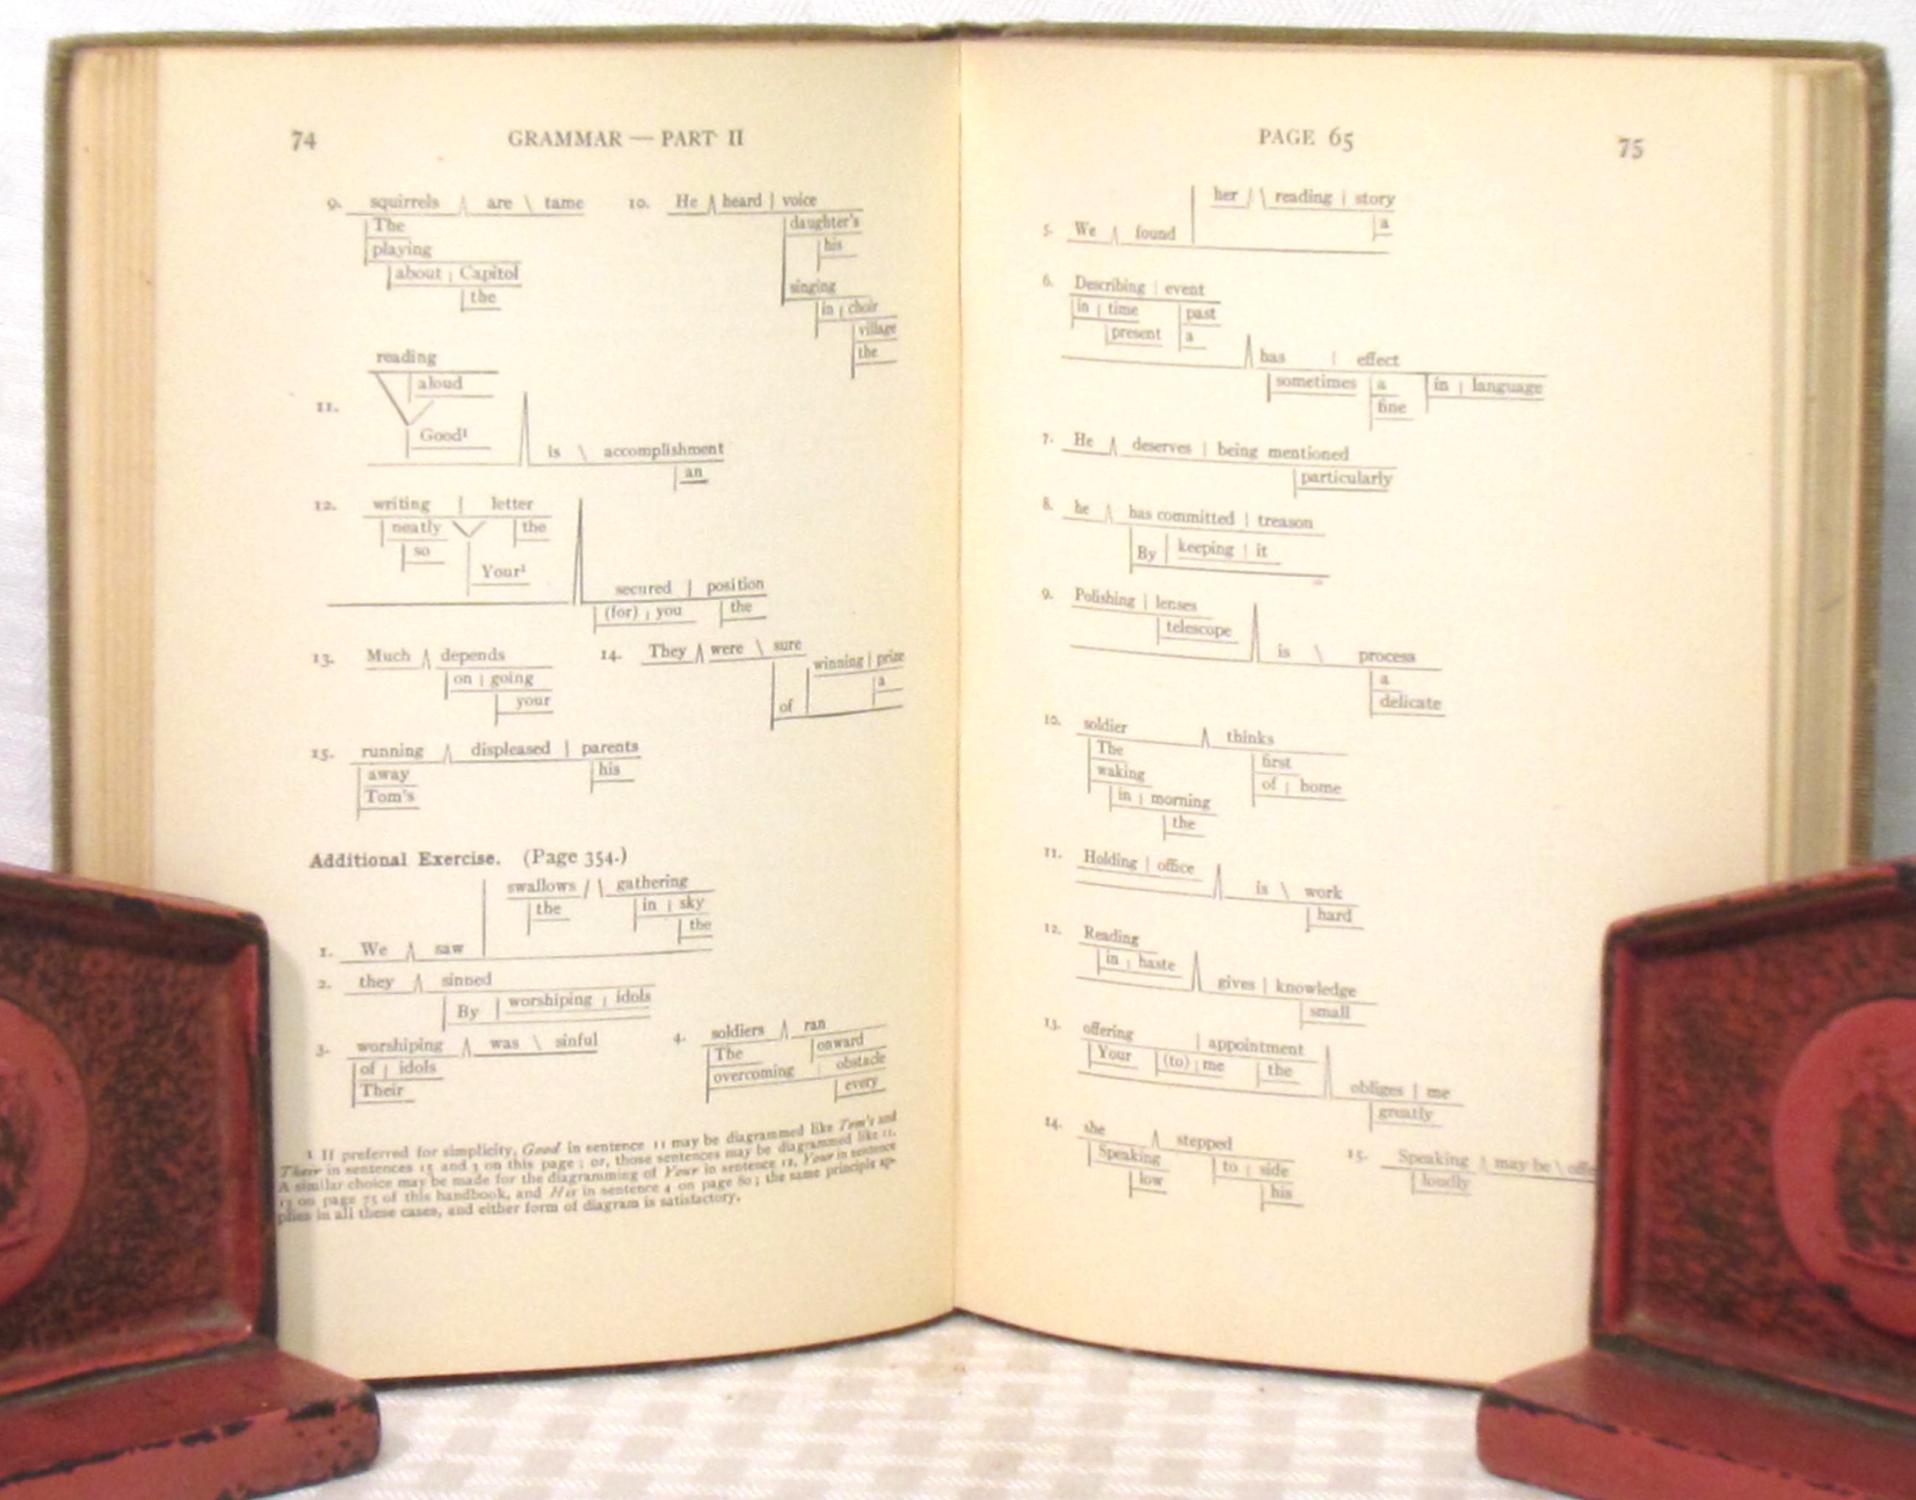 74 GRAMMAR — PART II
9. squirrels are \ tame
The
playing
about | Capitol
the
10. He heard | voice
daughter's
his
singing
in | choir
village
the
11.
reading
aloud
Good¹
is \ accomplishment
an
12. writing | letter
neatly the
so
Your¹
secured | position
(for) | you the
13. Much depends
on | going
your
14. They were \ sure
winning | prize
a
of
15. running displeased | parents
away his
Tom's
Additional Exercise. (Page 354.)
swallows / \ gathering
the in | sky
the
1. We saw
2. they sinned
By worshiping | idols
3. worshiping was \ sinful
of | idols
Their
4. soldiers ran
The onward
overcoming obstacle
every
1 If preferred for simplicity, Good in sentence 11 may be diagrammed like Tom's and
Their in sentences 15 and 3 on this page; or, those sentences may be diagrammed like 11.
A similar choice may be made for the diagramming of Your in sentence 12, Your in sentence
13 on page 75 of this handbook, and Her in sentence 4 on page 80; the same principle ap-
plies in all these cases, and either form of diagram is satisfactory.
PAGE 65 75
her / \ reading | story
a
5. We found
6. Describing | event
in | time past
present a
has | effect
sometimes a in | language
fine
7. He deserves | being mentioned
particularly
8. he has committed | treason
By keeping | it
9. Polishing | lenses
telescope
is \ process
a
delicate
10. soldier thinks
The first
waking of | home
in | morning
the
11. Holding | office
is \ work
hard
12. Reading
in | haste
gives | knowledge
small
13. offering | appointment
Your (to) | me the
obliges | me
greatly
14. she stepped
Speaking to | side
low his
15. Speaking may be \
loudly